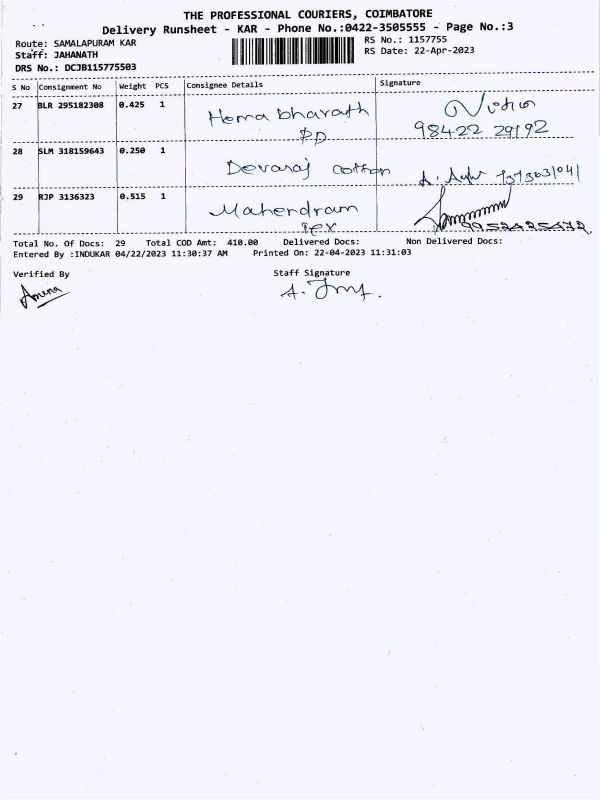 THE PROFESSIONAL COURIERS, COIMBATORE
Delivery Runsheet - KAR - Phone No.:0422-3505555 - Page No.:3
Route: SAMALAPURAM KAR
RS No.: 1157755
Staff: JAHANATH
RS Date: 22-Apr-2023
DRS No.: DCJB115775503
S No Consignment No Weight PCS Consignee Details Signature
27 BLR 295182308 0.425 1 Hema bharath
P.D
98422 29192
28 SLM 318159643 0.250 1 Devaraj cotton
29 RJP 3136323 0.515 1 Mahendram
Tex
Total No. Of Docs: 29 Total COD Amt: 410.00 Delivered Docs: Non Delivered Docs:
Entered By :INDUKAR 04/22/2023 11:30:37 AM Printed On: 22-04-2023 11:31:03
Verified By Staff Signature